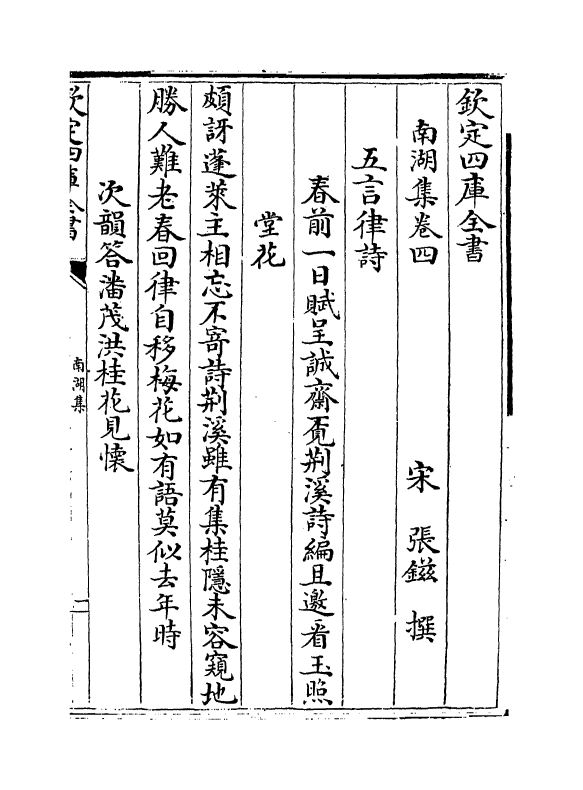 欽定四庫全書
南湖集卷四
宋 張鎡 撰
五言律詩
春前一日賦呈誠齋覔荆溪詩編且邀看玉照
堂花
頗訝蓬萊主相忘不寄詩荆溪雖有集桂隱未容窺地
勝人難老春回律自移梅花如有語莫似去年時
次韻答潘茂洪桂花見懷
欽定四庫全書
南湖集